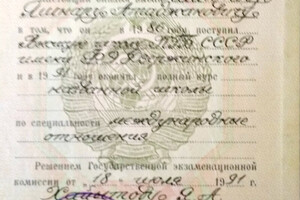 в том, что он в 1986 году поступил
в Высшую школу КГБ СССР
имени Ф.Э.Дзержинского
и в 1991 году окончил полный курс
названной школы
по специальности международные
отношения
Решением Государственной экзаменационной
комиссии от 18 июля 1991 г.
Я. А.